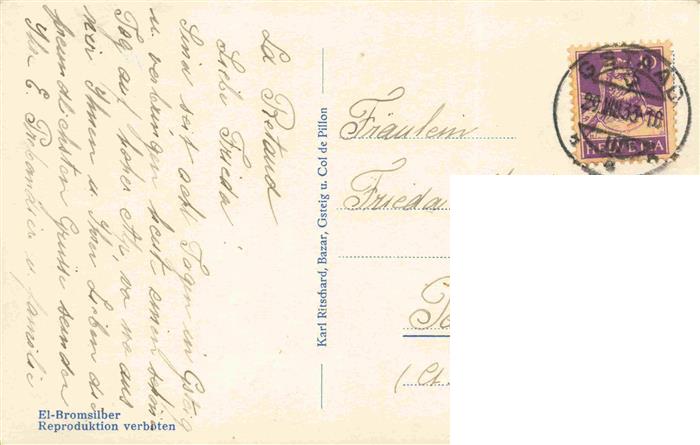 La Retaud
Liebe Frieda!
Sind seit acht Tagen in Gsteig
u. verbringen heut einen schönen
Tag auf hoher Alp, von wo aus
wir Ihnen u. Ihren Lieben die
freundlichsten Grüsse senden
Ihre E. u. Familie
Karl Ritschard, Bazar, Gsteig u. Col de Pillon
El-Bromsilber
Reproduktion verboten
Fräulein
Frieda
(Ct.
GSTAAD
29.VIII.33-16
HELVETIA